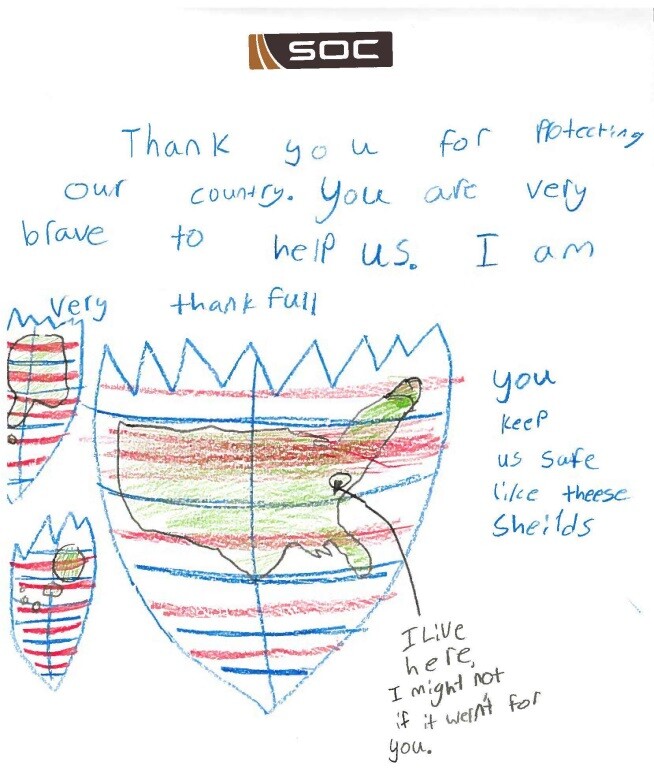 SOC
Thank you for Protecting
our country. You are very
brave to help us. I am
very thankfull
you
keep
us safe
like theese
Sheilds
I Live
here,
I might not
if it wern't for
you.